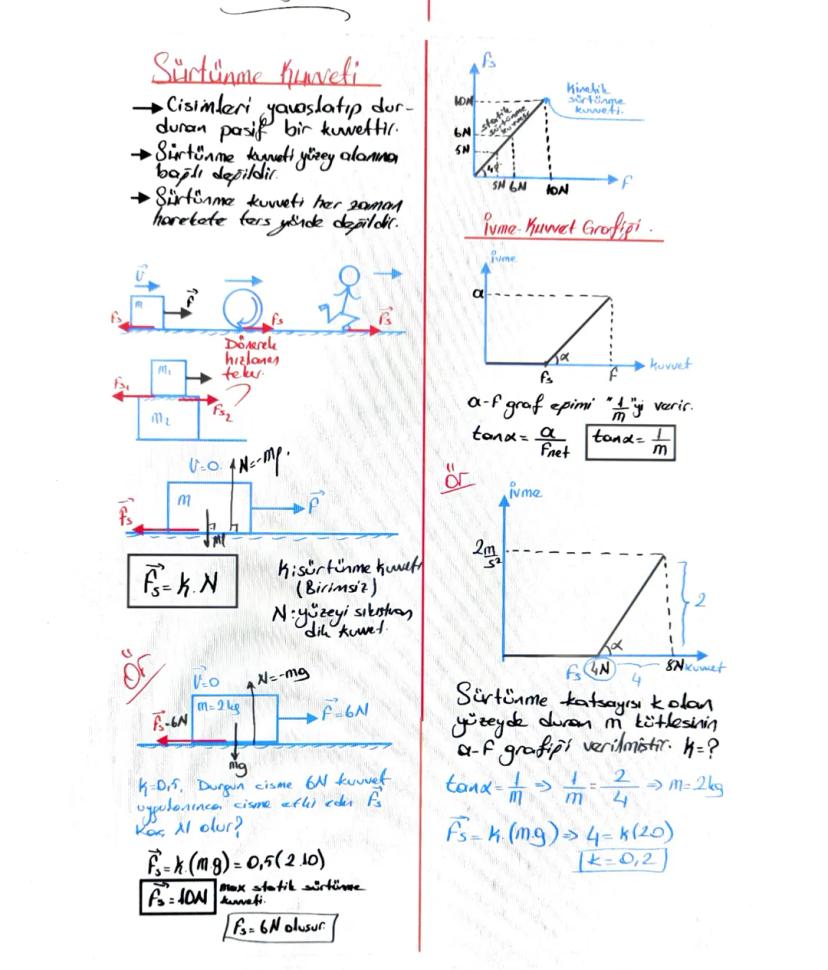 Sürtünme Kuvveti
→ Cisimleri yavaşlatıp dur-
duran pasif bir kuvvettir.
→ Sürtünme kuvveti yüzey alanına
bağlı değildir.
→ Sürtünme kuvveti her zaman
harekete ters yönde değildir.
V
m
F
Fs
Fs
Fs
Dönerek
hızlanan
teker.
m₁
Fs₁
Fs₂
m₂
V=0
N=-mg.
m
F
Fs
Fs = k.N
k: sürtünme kuvveti
(Birimsiz)
N: yüzeyi sıkıştıran
dik kuvvet.
Ör
V=0
N=-mg
m=2kg
Fs=6N
F=6N
mg
k=0,5. Durgun cisme 6N kuvvet
uygulanınca cisme etki eden Fs
Kaç N olur?
Fs = k.(mg) = 0,5(2.10)
Fs = 10N max statik sürtünme
kuvveti.
Fs = 6N oluşur.
Fs
10N
6N
5N
statik
sürtünme
kuvveti
Kinetik
sürtünme
kuvveti.
45
5N 6N 10N F
İvme-Kuvvet Grafiği.
ivme
a
α
kuvvet
fs F
a-F graf eğimi "1/m"yi verir.
tanα = a/Fnet tanα = 1/m
Ör
ivme
2m/s²
2
α
fs 4N 4 8N kuvvet
Sürtünme katsayısı k olan
yüzeyde duran m kütlesinin
a-F grafiği verilmiştir. k=?
tanα = 1/m ⇒ 1/m = 2/4 ⇒ m=2kg
Fs = k.(m.g) ⇒ 4 = k(20)
k = 0,2